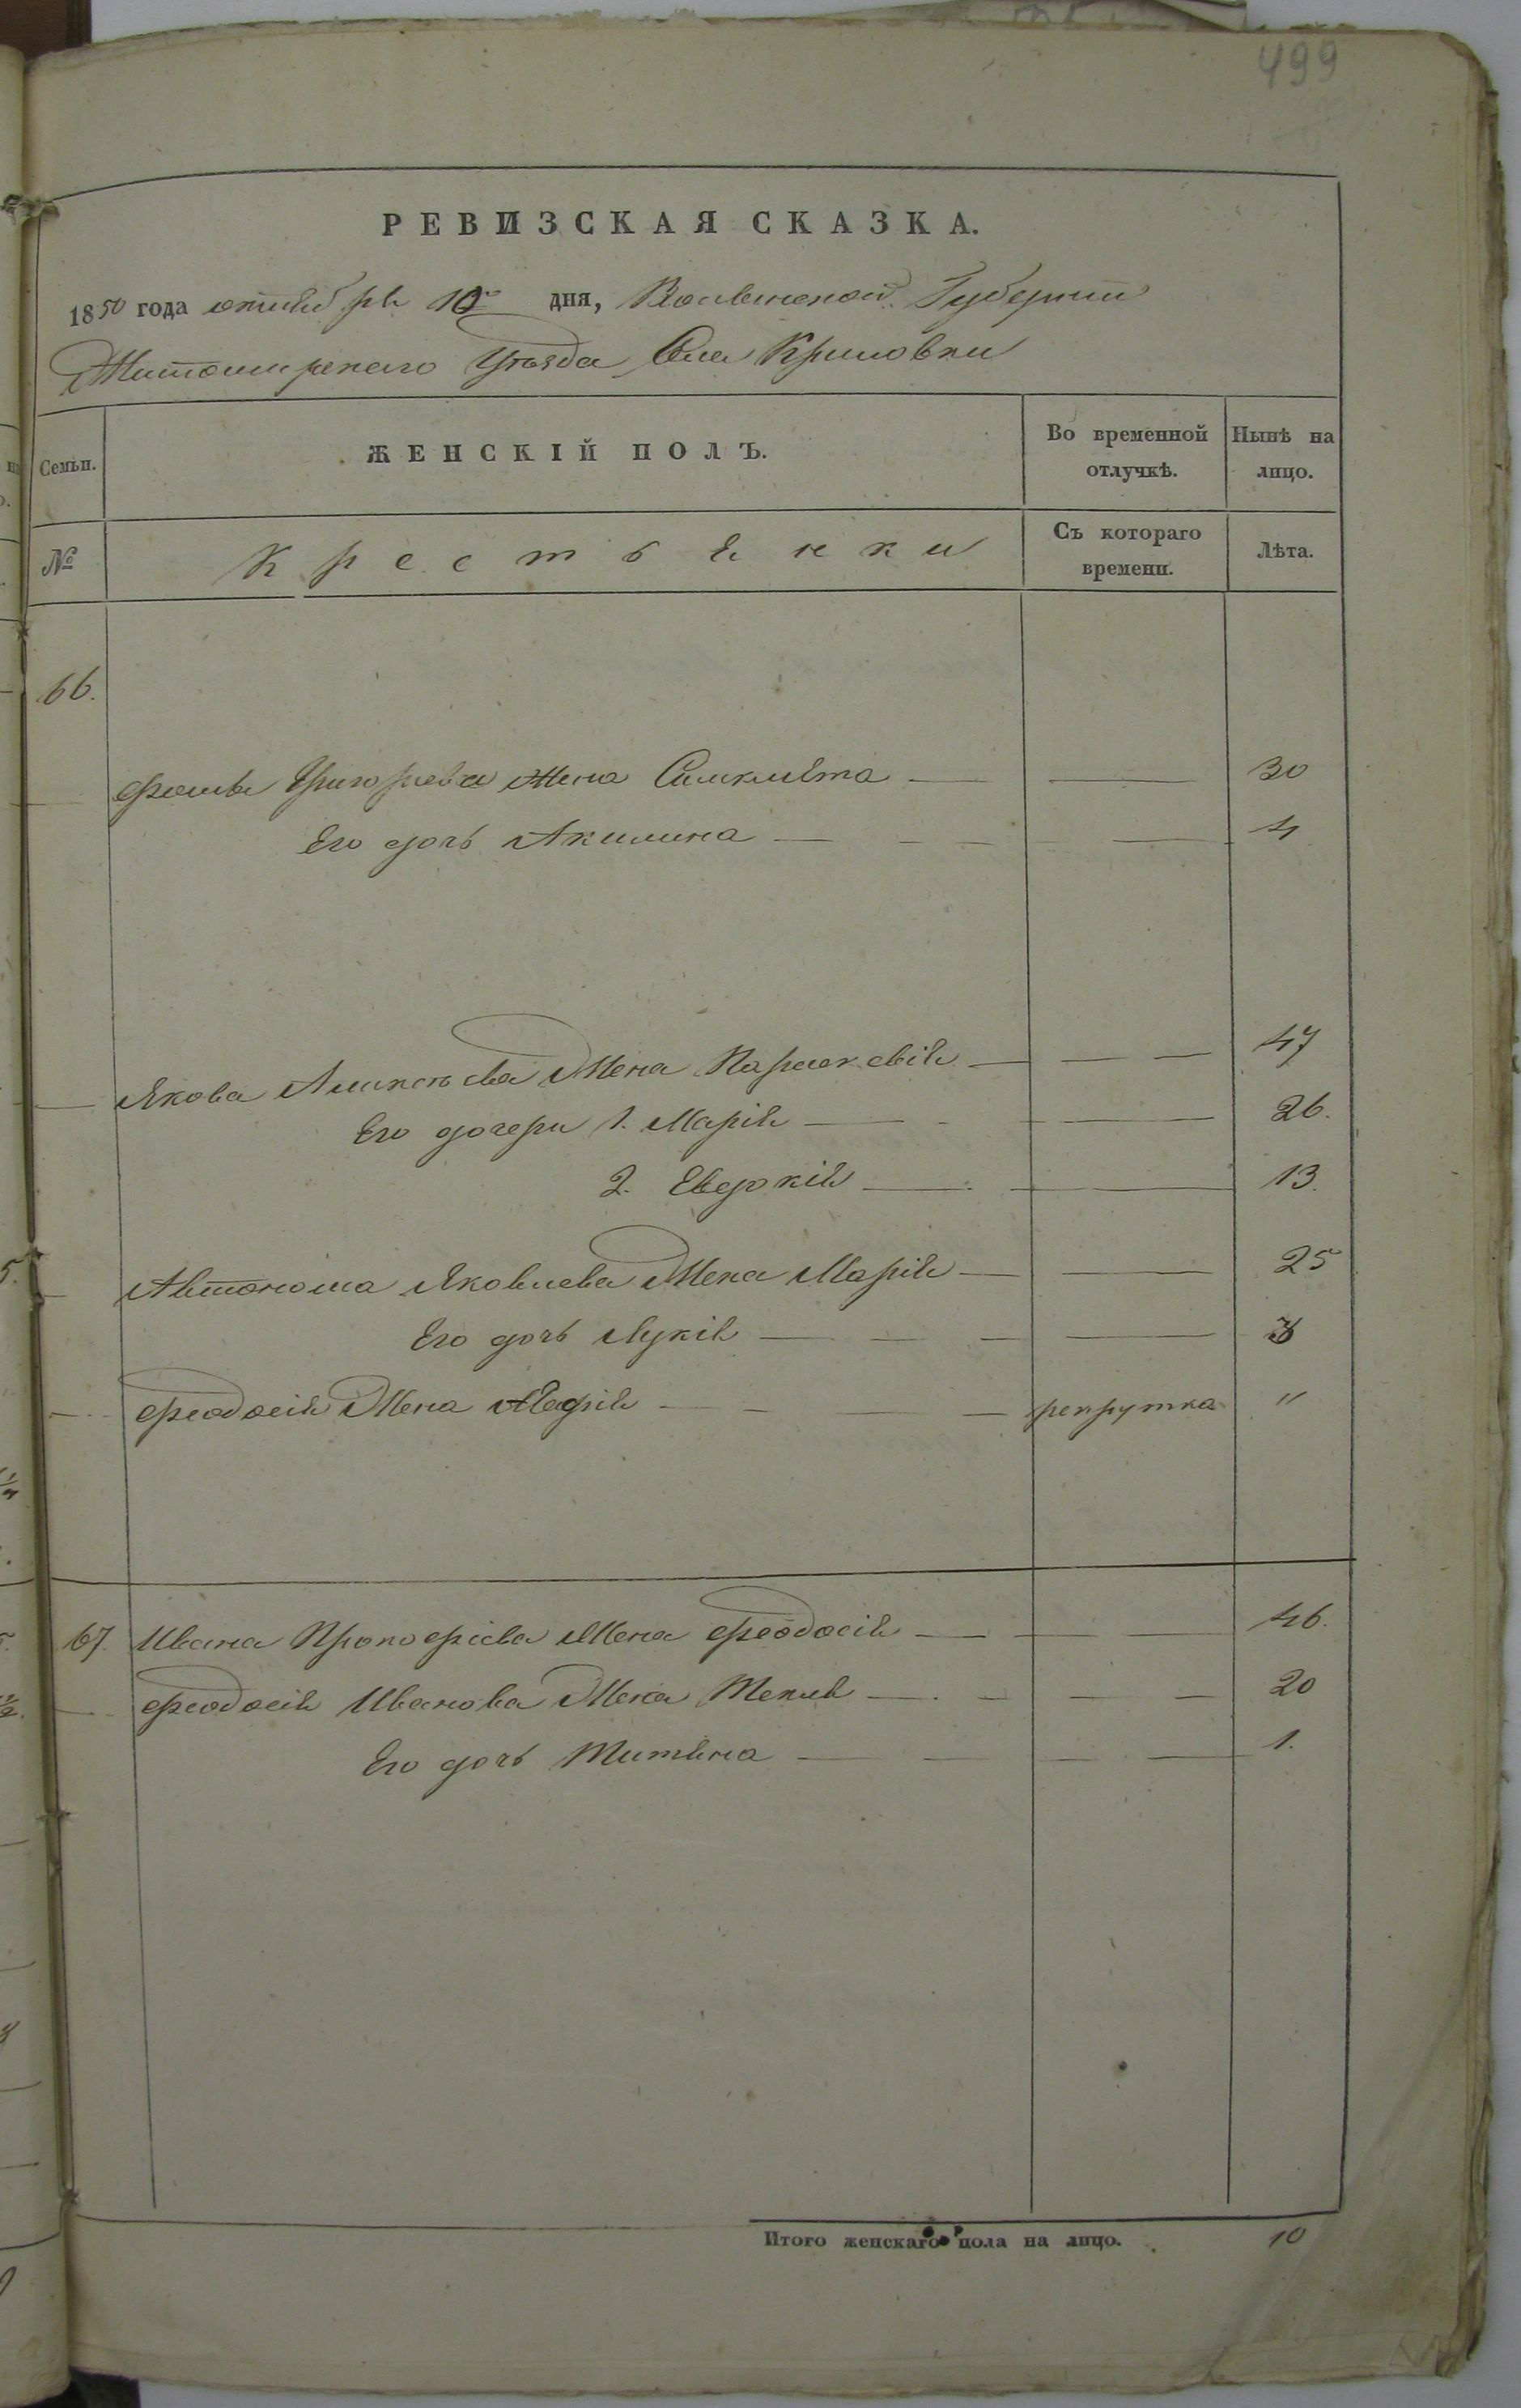 499
РЕВИЗСКАЯ СКАЗКА.
1850 года октября 10 дня, Волынской Губернии
Житомирскаго Уѣзда Села Криловки
Семьи. ЖЕНСКІЙ ПОЛЪ. Во временной отлучкѣ. Нынѣ на лицо.
№ Крестьянки Съ котораго времени. Лѣта.
66.
Фомы Григорьева жена Синклита — — 30
Его дочь Акилина — — 4
Якова Аликсѣева Жена Параскевія — — 47
Его дочери 1. Марія — — 26.
2. Евдокія — — 13.
Автонома Яковлева Жена Марія — — 25
Его дочь Лукія — — 3
Феодосія Жена Марія — рекрутка "
67. Ивана Прокофіева Жена Феодосія — — 46.
Феодосія Иванова Жена Текля — — 20
Его дочь Титяна — — 1.
Итого женскаго пола на лицо. 10